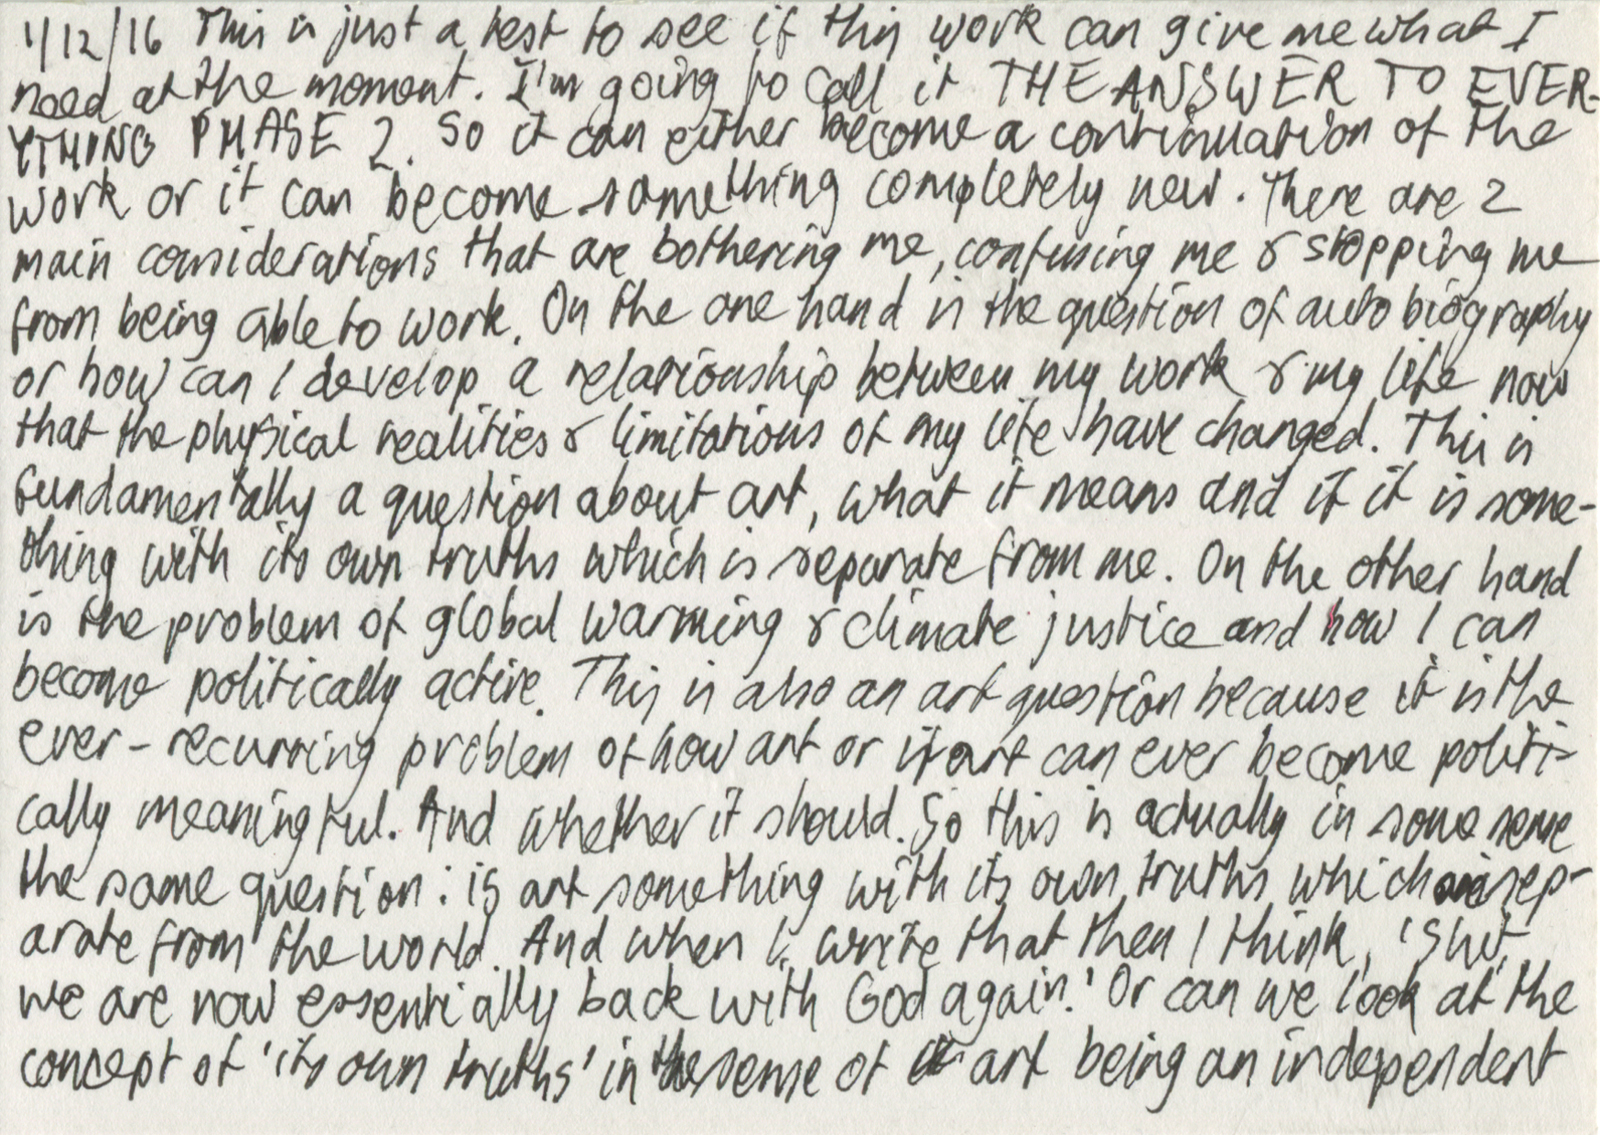 1/12/16 This is just a test to see if this work can give me what I
need at the moment. I'm going to call it THE ANSWER TO EVER-
YTHING PHASE 2. So it can either become a continuation of the
work or it can become something completely new. There are 2
main considerations that are bothering me, confusing me & stopping me
from being able to work. On the one hand is the question of autobiography
or how can I develop a relationship between my work & my life now
that the physical realities & limitations of my life have changed. This is
fundamentally a question about art, what it means and if it is some-
thing with its own truths which is separate from me. On the other hand
is the problem of global warming & climate justice and how I can
become politically active. This is also an art question because it is the
ever-recurring problem of how art or if art can ever become politi-
cally meaningful. And whether it should. So this is actually in some sense
the same question: is art something with its own truths which is sep-
arate from the world. And when I write that then I think, 'Shit,
we are now essentially back with God again.' Or can we look at the
concept of 'its own truths' in the sense of art being an independent